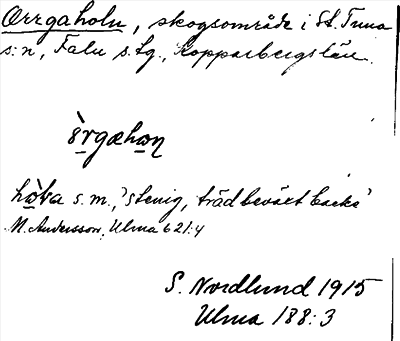 Orrgaholn, skogsområde i St. Tuna
s:n, Falu s.lg., Kopparbergs län.
ò̱rgæhω̱n
hὼ̱ɫa s.m., 'stenig, trädbeväxt backe'
M. Andersson, Ulma 621:4
S. Nordlund 1915
Ulma 188:3